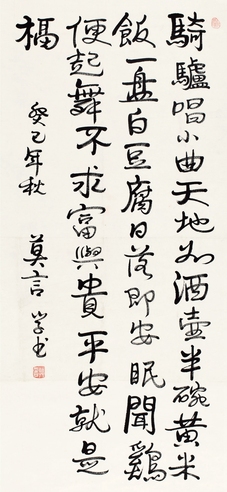 騎驢唱小曲天地如酒壺半碗黃米
飯一盤白豆腐日落即安眠聞鷄
便起舞不求富與貴平安就是
福
癸巳年秋 莫言学书